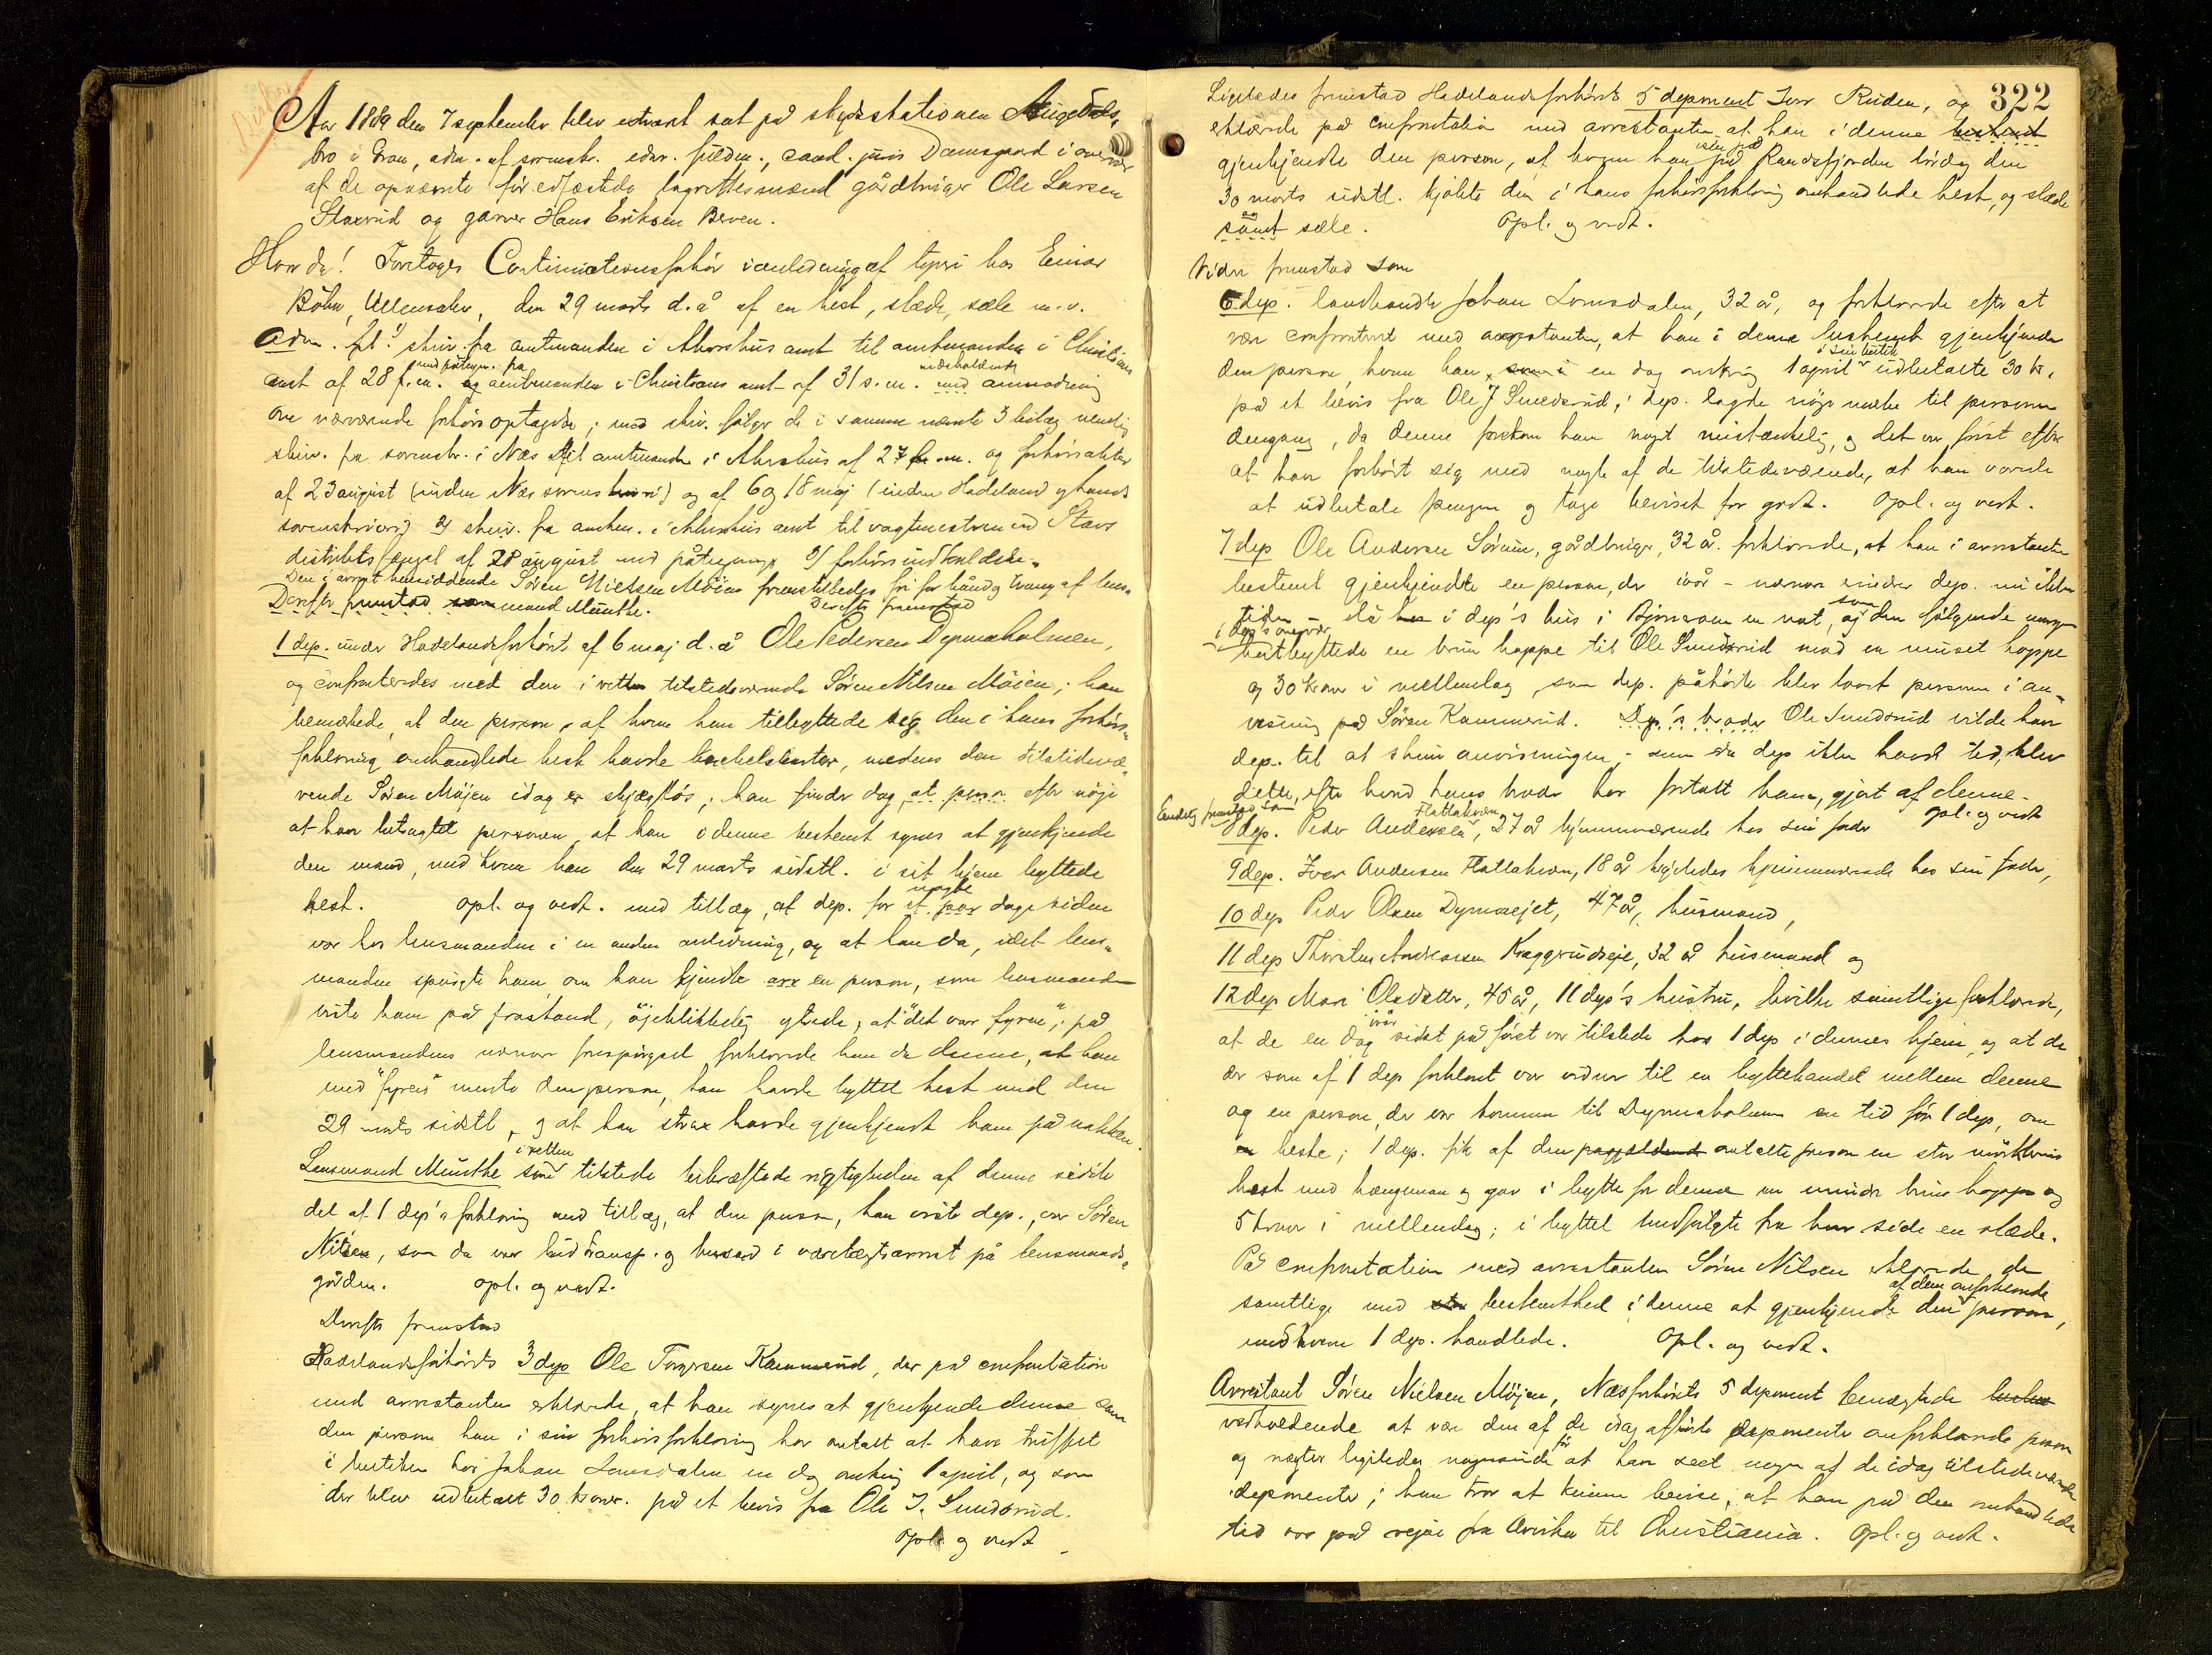 Aar 1889 den 7 september blev extraret sat på skydsstationen Augedals,
bro i Gran, adm. af sorenskr. edsv. fuldm., cand. juris Damsgaard i overvær
af de opnævnte før edfæstede lagrettesmænd gårdbruger Ole Larsen
Staxrud og garver Hans Eriksen Beven.
Hvor da! Foretoges Continuationsforhør i anledning af tyveri hos Einar
Böhn, Ullensaker, den 29 marts d. å af en hest, slæde, sæle m. v.
Adm. fr. 1/ skriv. fra amtmanden i Akershus amt til amtmanden i Christians
amt af 28 f. m. med påtegn. fra amtmanden i Christians amt af 31 s. m. indeholdende anmodning
om nærværende forhørs optagelse; med skriv. følger de i samme nævnte 3 bilag nemlig
skriv. fra sorenskr. i Næs til amtmanden i Akershus af 27 f. m. og forhørsakter
af 23 august (inden Næs sorenskriveri) og af 6 og 18 maj (inden Hadeland og Lands
sorenskriveri) 2/ skriv. fra amtm. i Akershus amt til vagtmesteren ved Stavs
distriktsfængsel af 28 august med påtegninger 3/ forhørsindkaldelse.
Den i arrest hensiddende Søren Nielsen Möien fremstilledes fri for bånd og tvang af lens-
mand Münthe. Derefter fremstod
1 dep. under Hadelandsforhøret af 6 maj d. å Ole Pedersen Dymaholmen,
og confronterdes med den i retten tilstedeværende Søren Nilsen Möien; han
bemærkede, at den person, af hvem han tilbyttede sig den i hans forhørs-
forklaring omhandlede hest havde bakkebarter, medens den tilstedevæ-
rende Søren Möjen idag er skjægløs; han finder dog, at efter nöje
at have betragtet personen, at han i denne bestemt synes at gjenkjende
den mand, med hvem han den 29 marts sidstl. i sit hjem byttede
hest. Opl. og vedt. med tillæg, at dep. for nogle dage siden
var hos lensmanden i en anden anledning, og at han da, idet lens-
manden spurgte ham om han kjendte en person, som lensmanden
viste ham på frastand, öjeblikkelig ytrede, at "det var fyren"; på
lensmandens nærmere forespørgsel forklarede han da denne, at han
med "fyren" mente den person, han havde byttet hest med den
29 marts sidstl, og at han strax havde gjenkjendt ham på nakken.
Lensmand Münthe som i retten tilstede bekræftede rigtigheden af denne sidste
del af 1 dep's forklaring med tillæg, at den person, han viste dep., var Søren
Nilsen, som da var under transp. og hensad i varetægtsarrest på lensmands-
gården. Opl. og vedt.
Derefter fremstod
Hadelandsforhørets 3 dep Ole Torgersen Kammerud, der på confrontation
med arrestanten erklærede, at han synes at gjenkjende denne som
den person han i sin forhørsforklaring har omtalt at have truffet
i butiken hos Johan Lomsdalen en dag omkring 1 april, og som
der blev udbetalt 30 kroner. på et bevis fra Ole J. Smedsrud.
Opl. og vedt
322
Ligeledes fremstod Hadelandsforhørets 5 deponent Iver Ruden, og
erklærede på confrontation med arrestanten at han i denne bestemt
gjenkjendte den person, af hvem han isen på Randsfjorden lördag den
30 marts sidstl. kjöbte den i hans forhørsforklaring omhandlede hest, og slæde
og sæle. Opl. og vedt.
Videre fremstod som
6 dep. landhandler Johan Lomsdalen, 32 år, og forklarede efter at
være confronteret med arrestanten, at han i denne bestemt gjenkjender
den person, hvem han en dag omkring 1 april i sin butik udbetalte 30 kr.
på et bevis fra Ole J Smedsrud; dep. lagde nöje mærke til personen
dengang, da denne forekom ham noget mistænkelig, og det var först efter
at have forhört sig med nogle af de tilstedeværende, at han vovede
at udbetale pengene og tage beviset for godt. Opl. og vedt.
7 dep Ole Andersen Sörum, gårdbruger, 32 å. forklarede, at han i arrestanten
bestemt gjenkjendte en person, der ivår - nærmere erindrer dep. nu ikke
tiden lå i dep's hus i Bjoneroa en nat, og som den følgende morgen
i dep's overvær bortbyttede en brun hoppe til Ole Smedsrud mod en muset hoppe
og 30 kroner i mellemlag, som dep. påhörte blev lovet personen i an-
visning på Søren Kammerud. Dep's broder Ole Smedsrud vilde have
dep. til at skrive anvisningen, - men da dep ikke havde tid, blev
dette, efter hvad hans broder har fortalt ham, gjort af denne.
Opl. og vedt
Endelig fremstod som
8 dep. Peder Andersen Flattakven, 27 å hjemmeværende hos sin fader
9 dep. Iver Andersen Flattakven, 18 år ligeledes hjemmeværende hos sin fader,
10 dep Peder Olsen Dymaejet, 47 å, husmand,
11 dep Thorsten Andreasen Kraggrudseje, 32 å husmand og
12 dep Mari Olsdatter, 45 å, 11 dep's hustru, hvilke samtlige forklarede,
at de en dag ivår sidst på föret var tilstede hos 1 dep i dennes hjem, og at de
der som af 1 dep forklaret var vidner til en byttehandel mellem denne
og en person, der var kommen til Dymaholmen en tid för 1 dep, om
heste; 1 dep. fik af den omtalte person en stor mörkbrun
hest med hængeman og gav i bytte for denne en mindre brun hoppe og
5 kroner i mellemlag; i byttet medfulgte fra hver side en slæde.
På confrontation med arrestanten Søren Nilsen erklærede de
samtlige med bestemthed i denne at gjenkjende den af dem omforklarede person,
med hvem 1 dep. handlede. Opl. og vedt.
Arrestant Søren Nielsen Möjen, Næsforhörets 5 deponent benægtede
vedholdende at være den af de idag afhörte deponenter omforklarede person
og nægter ligeledes nogensinde för at have seet nogen af de idag tilstedeværende
deponenter; han tror at kunne bevise, at han på den omhandlede
tid var på rejse fra Arvika til Christiania. Opl. og vedt.